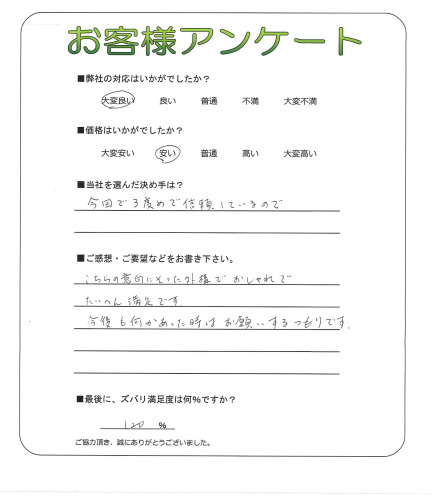 お客様アンケート
■弊社の対応はいかがでしたか？
大変良い 良い 普通 不満 大変不満
■価格はいかがでしたか？
大変安い 安い 普通 高い 大変高い
■当社を選んだ決め手は？
今回で3度めで信頼しているので
■ご感想・ご要望などをお書き下さい。
こちらの意向にそった外構でおしゃれで
たいへん満足です
今後も何かあった時はお願いするつもりです.
■最後に、ズバリ満足度は何％ですか？
120 ％
ご協力頂き、誠にありがとうございました。